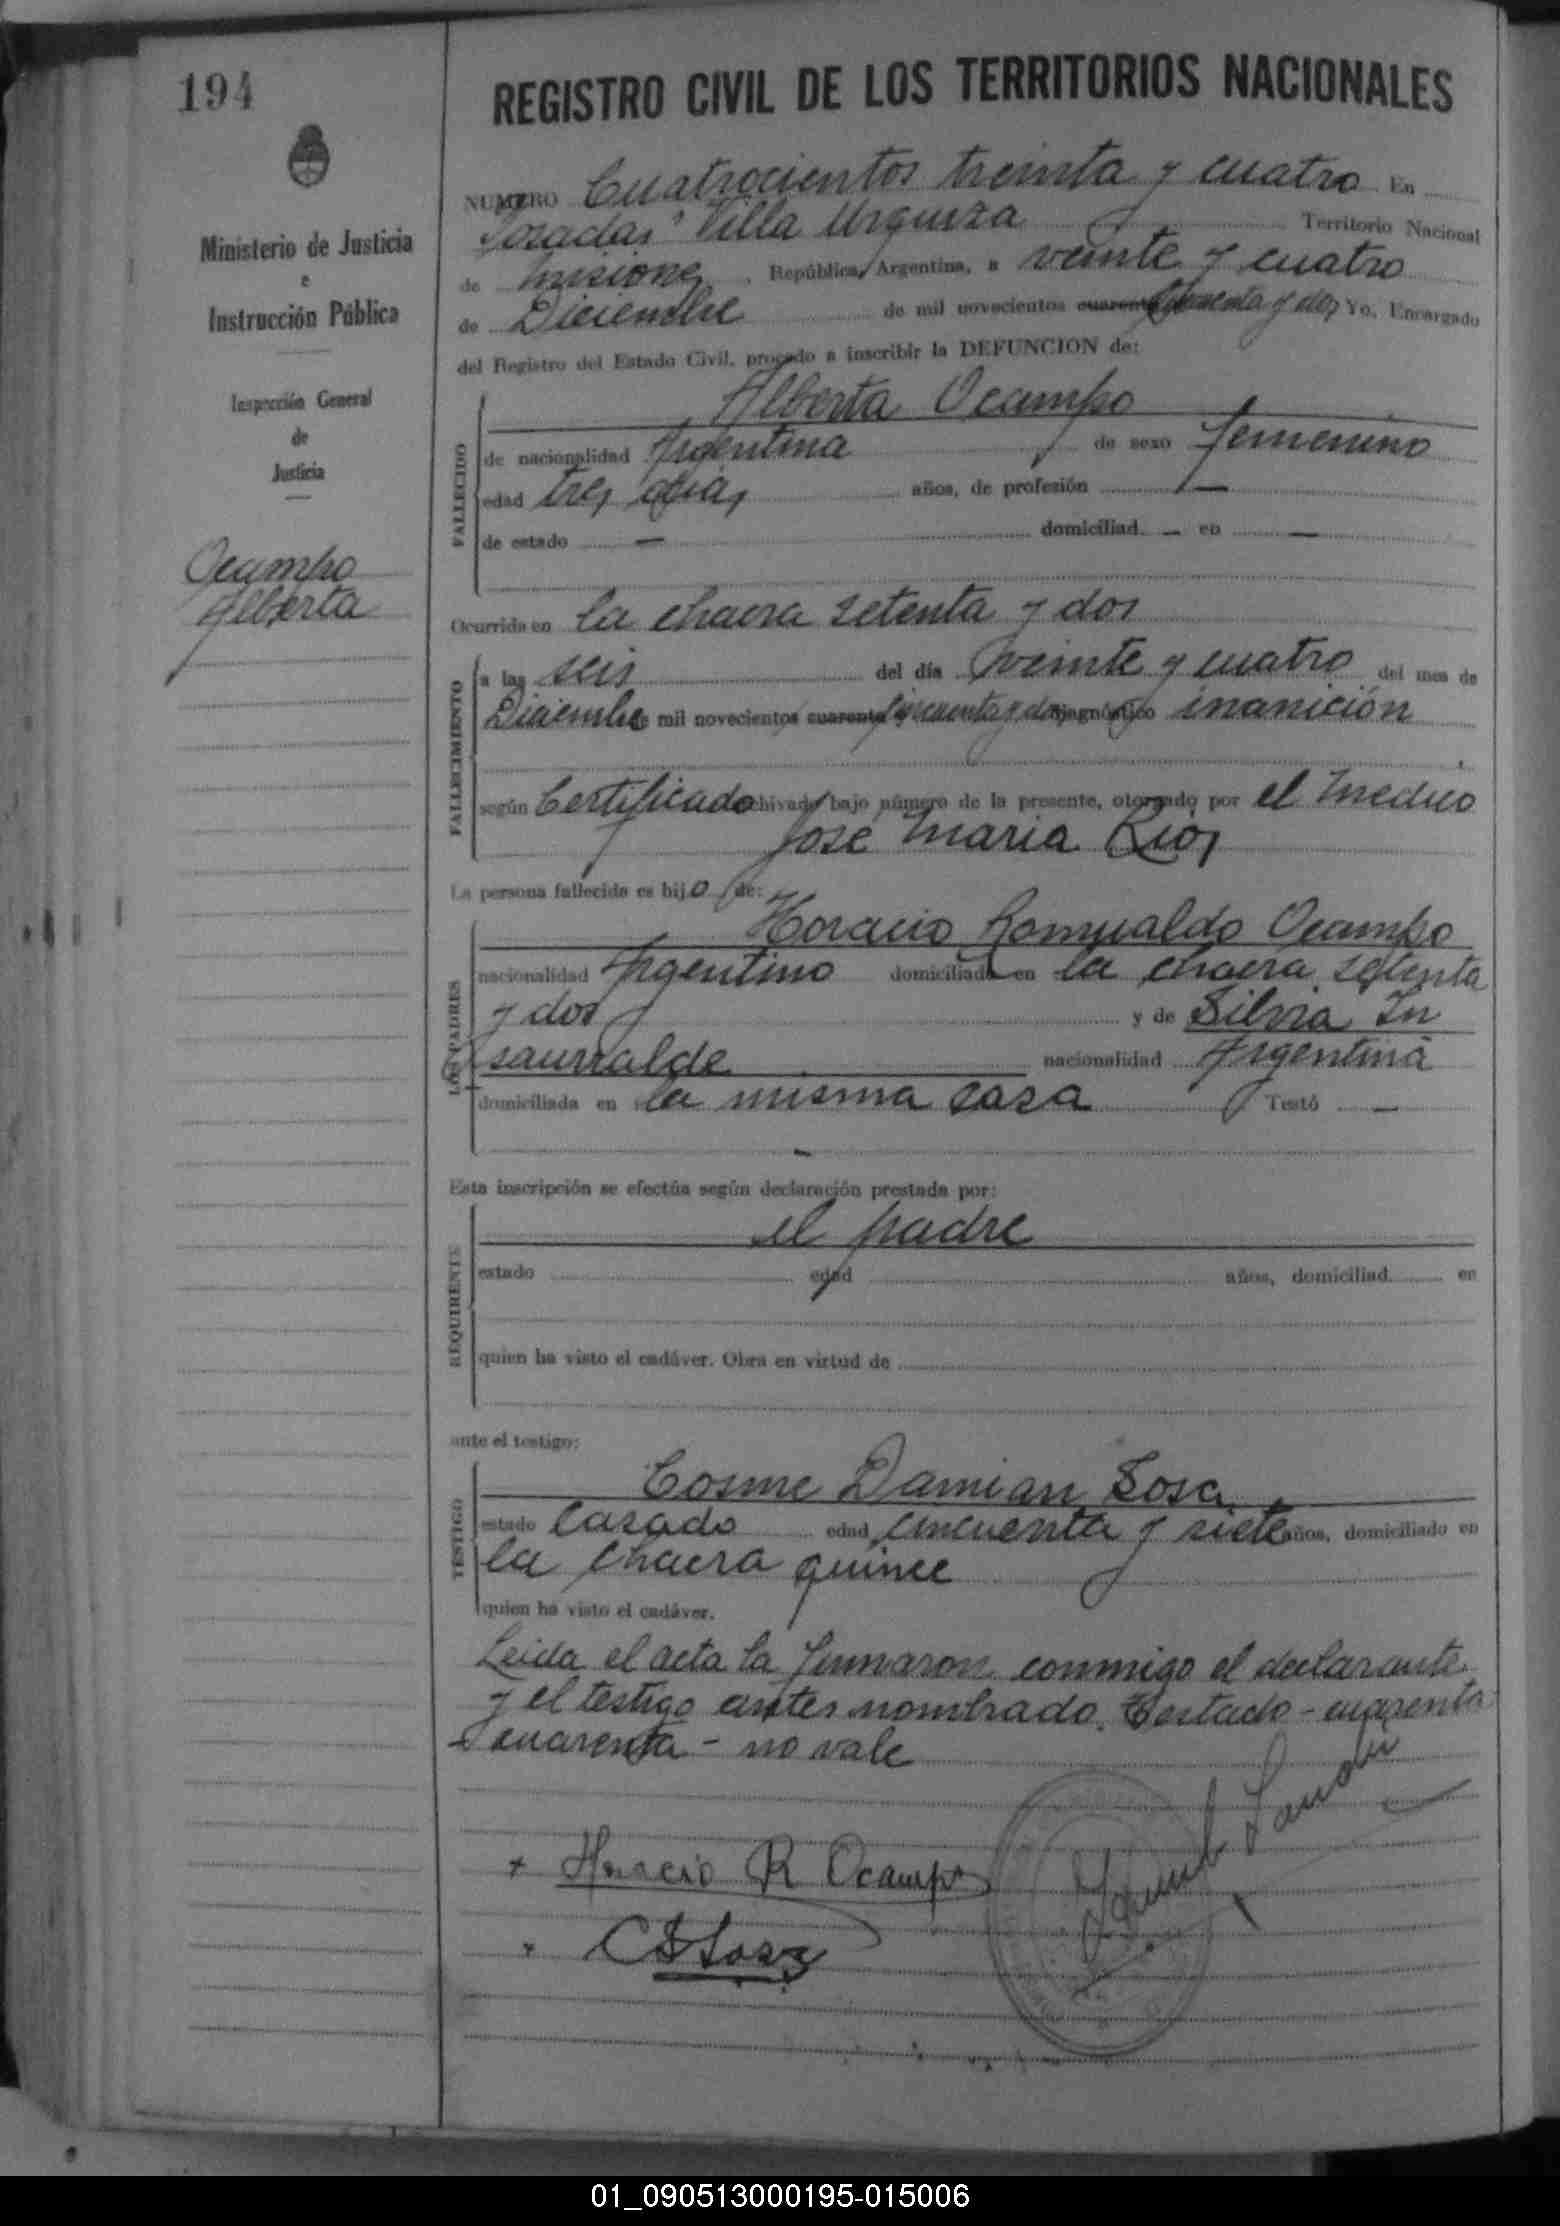 194
Ministerio de Justicia
e
Instrucción Pública
Inspección General
de
Justicia
Ocampo
Alberta
REGISTRO CIVIL DE LOS TERRITORIOS NACIONALES
NUMERO Cuatrocientos treinta y cuatro En
Posadas Villa Urquiza Territorio Nacional
de Misiones, República Argentina, a veinte y cuatro
de Diciembre de mil novecientos cuarenta cincuenta y dos Yo, Encargado
del Registro del Estado Civil, procedo a inscribir la DEFUNCION de:
FALLECIDO
Alberta Ocampo
de nacionalidad Argentina de sexo femenino
edad tres dias años, de profesión —
de estado — domiciliad — en —
Ocurrida en la chacra setenta y dos
FALLECIMIENTO
a las seis del día veinte y cuatro del mes de
Diciembre de mil novecientos cuarenta cincuenta y dos diagnóstico inanición
según Certificado archivado bajo número de la presente, otorgado por el Medico
José Maria Rios
La persona fallecida es hijo de:
LOS PADRES
Horacio Romualdo Ocampo
nacionalidad Argentino domiciliado en la chacra setenta
y dos y de Silvia In
saurralde nacionalidad Argentina
domiciliada en la misma casa Testó —
—
Esta inscripción se efectúa según declaración prestada por:
REQUIRENTE
el padre
estado edad años, domiciliad en
quien ha visto el cadáver. Obra en virtud de
ante el testigo:
TESTIGO
Cosme Damian Sosa
estado Casado edad cincuenta y siete años, domiciliado en
la chacra quince
quien ha visto el cadáver.
Leida el acta la firmaron conmigo el declarante
y el testigo antes nombrado. Testado - cuarenta
- cuarenta - no vale
+ Horacio R Ocampo
+ C D Sosa
01_090513000195-015006